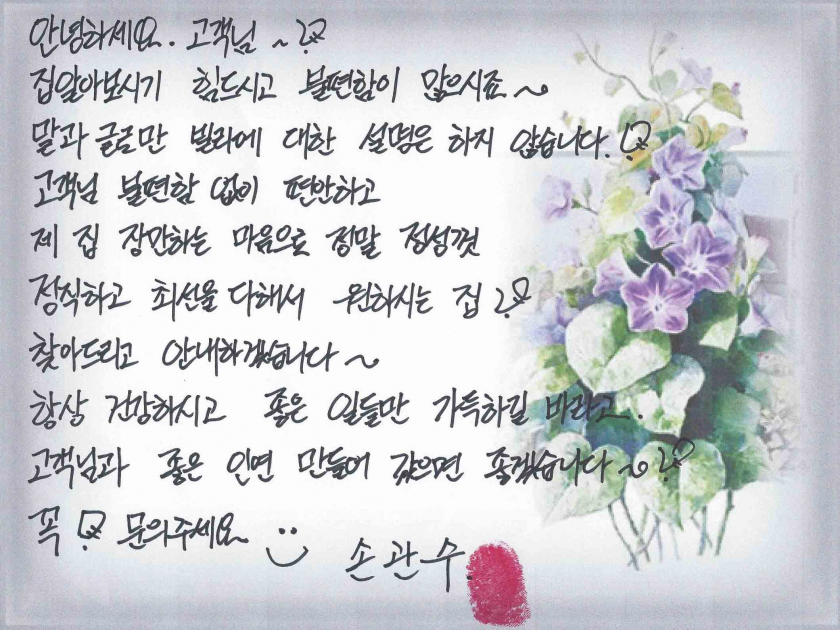 안녕하세요. 고객님 ~♡
집알아보시기 힘드시고 불편함이 많으시죠~
말과 글로만 빌라에 대한 설명은 하지 않습니다.!♡
고객님 불편함 없이 편안하고
제 집 장만하는 마음으로 정말 정성껏
정직하고 최선을 다해서 원하시는 집♡
찾아드리고 안내하겠습니다~
항상 건강하시고 좋은 일들만 가득하길 바라고.
고객님과 좋은 인연 만들어 갔으면 좋겠습니다~♡
꼭! 문의주세요~
손관수.